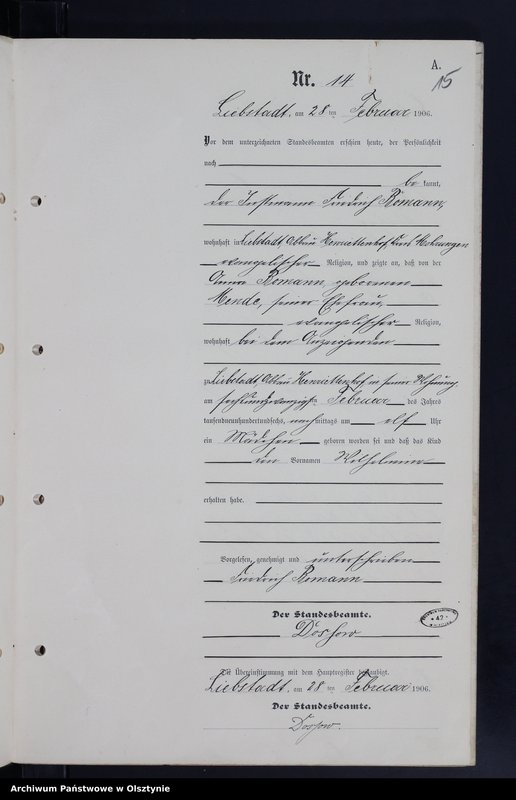 A.
15
Nr. 14
Liebstadt, am 28 ten Februar 1906.
Vor dem unterzeichneten Standesbeamten erschien heute, der Persönlichkeit
nach
be kannt,
der Instmann Friedrich Romann,
wohnhaft in Liebstadt, Abbau Henriettenhof, Kreis Mohrungen
evangelischer Religion, und zeigte an, daß von der
Anna Romann, geborenen
Mende, seiner Ehefrau,
evangelischer Religion,
wohnhaft bei dem Anzeigenden
zu Liebstadt, Abbau Henriettenhof in seiner Wohnung
am sechsundzwanzigsten Februar des Jahres
tausendneunhundertundsechs, nachmittags um elf Uhr
ein Mädchen geboren worden sei und daß das Kind
den Vornamen Wilhelmine
erhalten habe.
Vorgelesen, genehmigt und unterschrieben
Friedrich Romann
Der Standesbeamte.
42
Die Übereinstimmung mit dem Hauptregister beglaubigt.
Liebstadt, am 28 ten Februar 1906.
Der Standesbeamte.
Archiwum Państwowe w Olsztynie